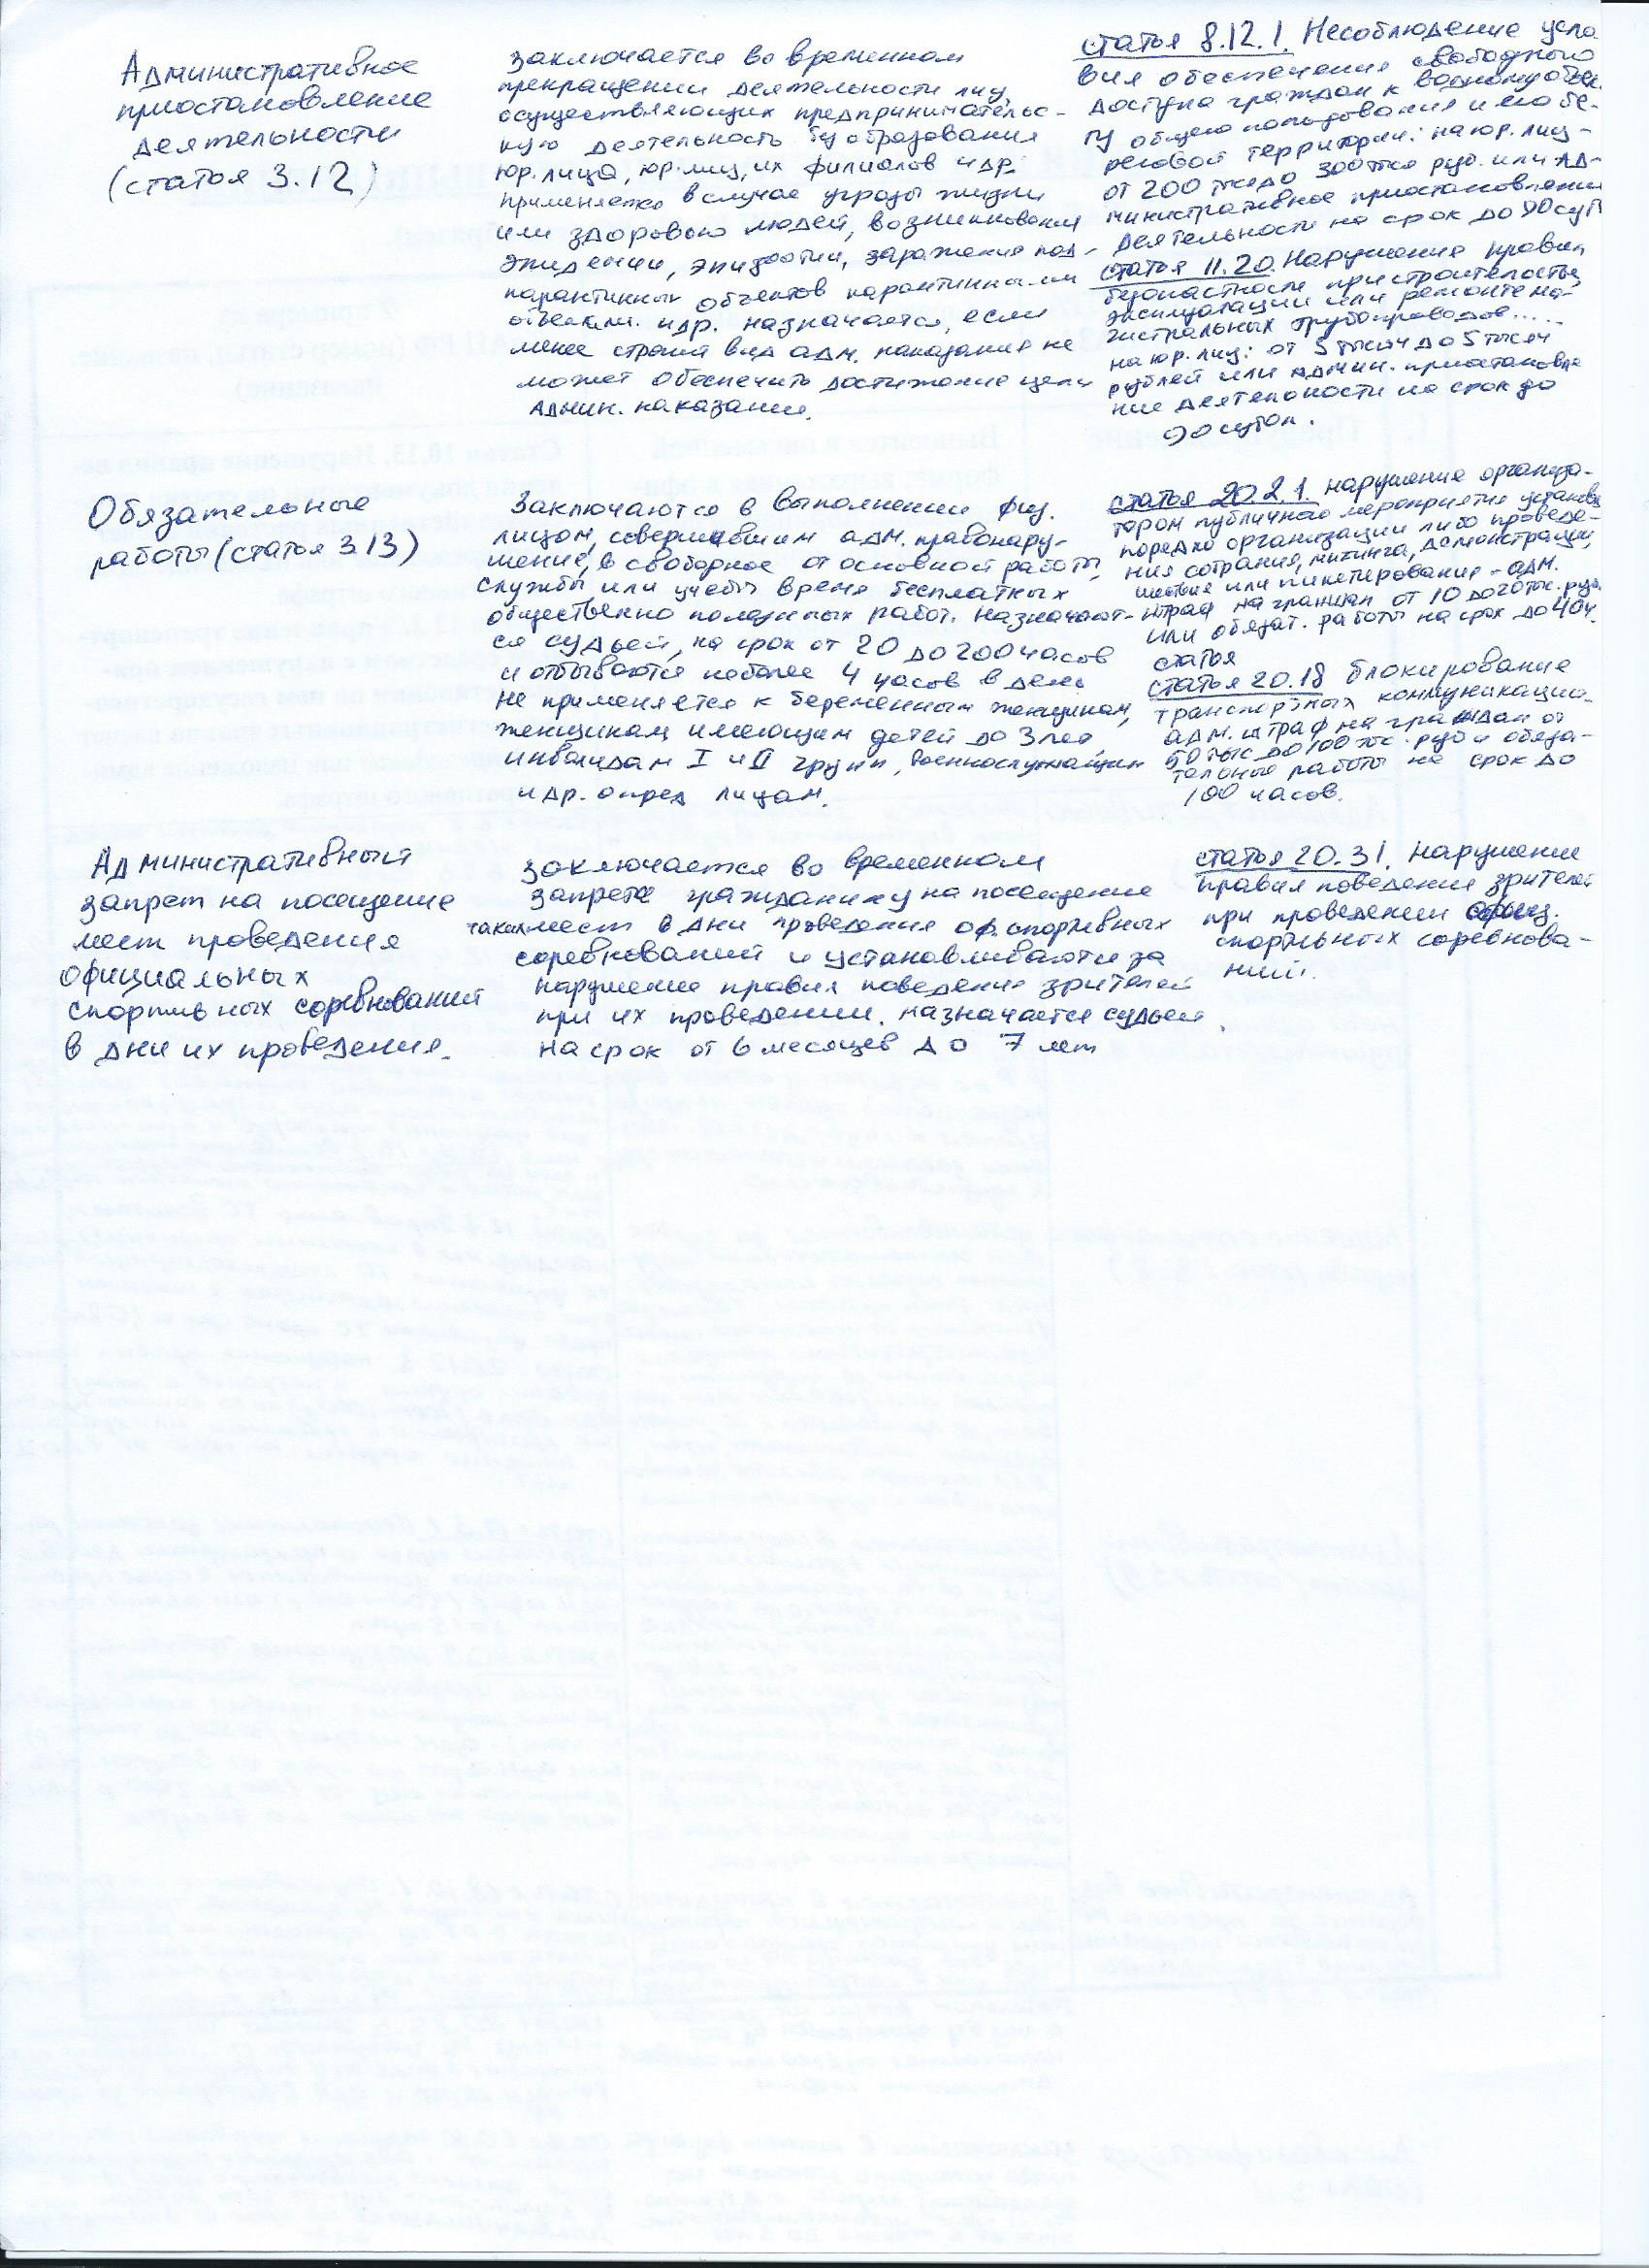 Административное
приостановление
деятельности
(статья 3.12)
заключается во временном
прекращении деятельности лиц,
осуществляющих предпринимательс-
кую деятельность без образования
юр. лица, юр. лиц, их филиалов и др.
применяется в случае угрозы жизни
или здоровью людей, возникновения
эпидемии, эпизоотии, заражения под-
карантинных объектов карантинными
объектами. и др. назначается, если
менее строгий вид адм. наказания не
может обеспечить достижение цели
админ. наказания.
статья 8.12.1. Несоблюдение усло
вия обеспечения свободного
доступа граждан к водному объек.
ту общего пользования и его бе-
реговой территории: на юр. лиц -
от 200 тыс до 300 тыс руб. или ад-
министративное приостановление
деятельности на срок до 90 сут
статья 11.20. Нарушение правил
безопасности при строительстве,
эксплуатации или ремонте ма-
гистральных трубопроводов.....
на юр. лиц: от 5 тысяч до 5 тысяч
рублей или админ. приостановле
ние деятельности на срок до
90 суток.
Обязательные
работы (статья 3.13)
Заключаются в выполнении физ.
лицом, совершившим адм. правонару-
шение, в свободное от основной работы,
службы или учебы время бесплатных
общественно полезных работ. Назначают-
ся судьей, на срок от 20 до 200 часов
и отбываются не более 4 часов в день
не применяется к беременным женщинам,
женщинам имеющим детей до 3 лет,
инвалидам I и II групп, военнослужащим
и др. опред лицам.
статья 20.2.1. нарушение организа-
тором публичного мероприятия установл
порядка организации либо проведе-
ния собрания, митинга, демонстрации,
шествия или пикетирования - адм.
штраф на граждан от 10 до 20 тыс. руб.
или обязат. работы на срок до 40 ч.
статья
статья 20.18 блокирование
транспортных коммуникацио.
адм. штраф на граждан от
50 тыс до 100 тыс. руб и обяза-
тельные работы на срок до
100 часов.
Административный
запрет на посещение
мест проведения
официальных
спортивных соревнований
в дни их проведения.
заключается во временном
запрете гражданину на посещение
таких мест в дни проведения оф. спортивных
соревнований и устанавливаются за
нарушение правил поведения зрителей
при их проведении. назначается судьей
на срок от 6 месяцев до 7 лет
статья 20.31. Нарушение
правил поведения зрителей
при проведении
спортивных соревнова-
ний.